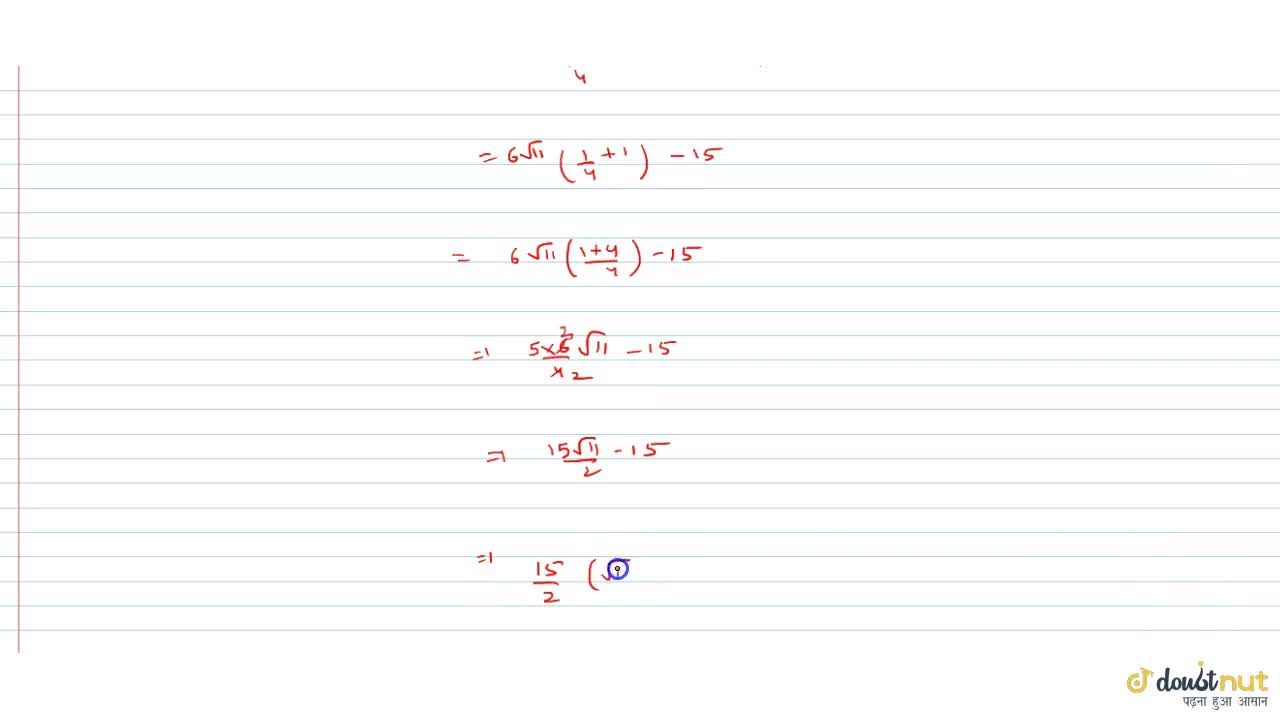 4
= 6√11 (1/4 + 1) - 15
= 6√11 (1+4/4) - 15
⇒ 5×6 3/4 2 √11 - 15
⇒ 15√11/2 - 15
⇒ 15/2 (√
doubtnut
पढ़ना हुआ आसान